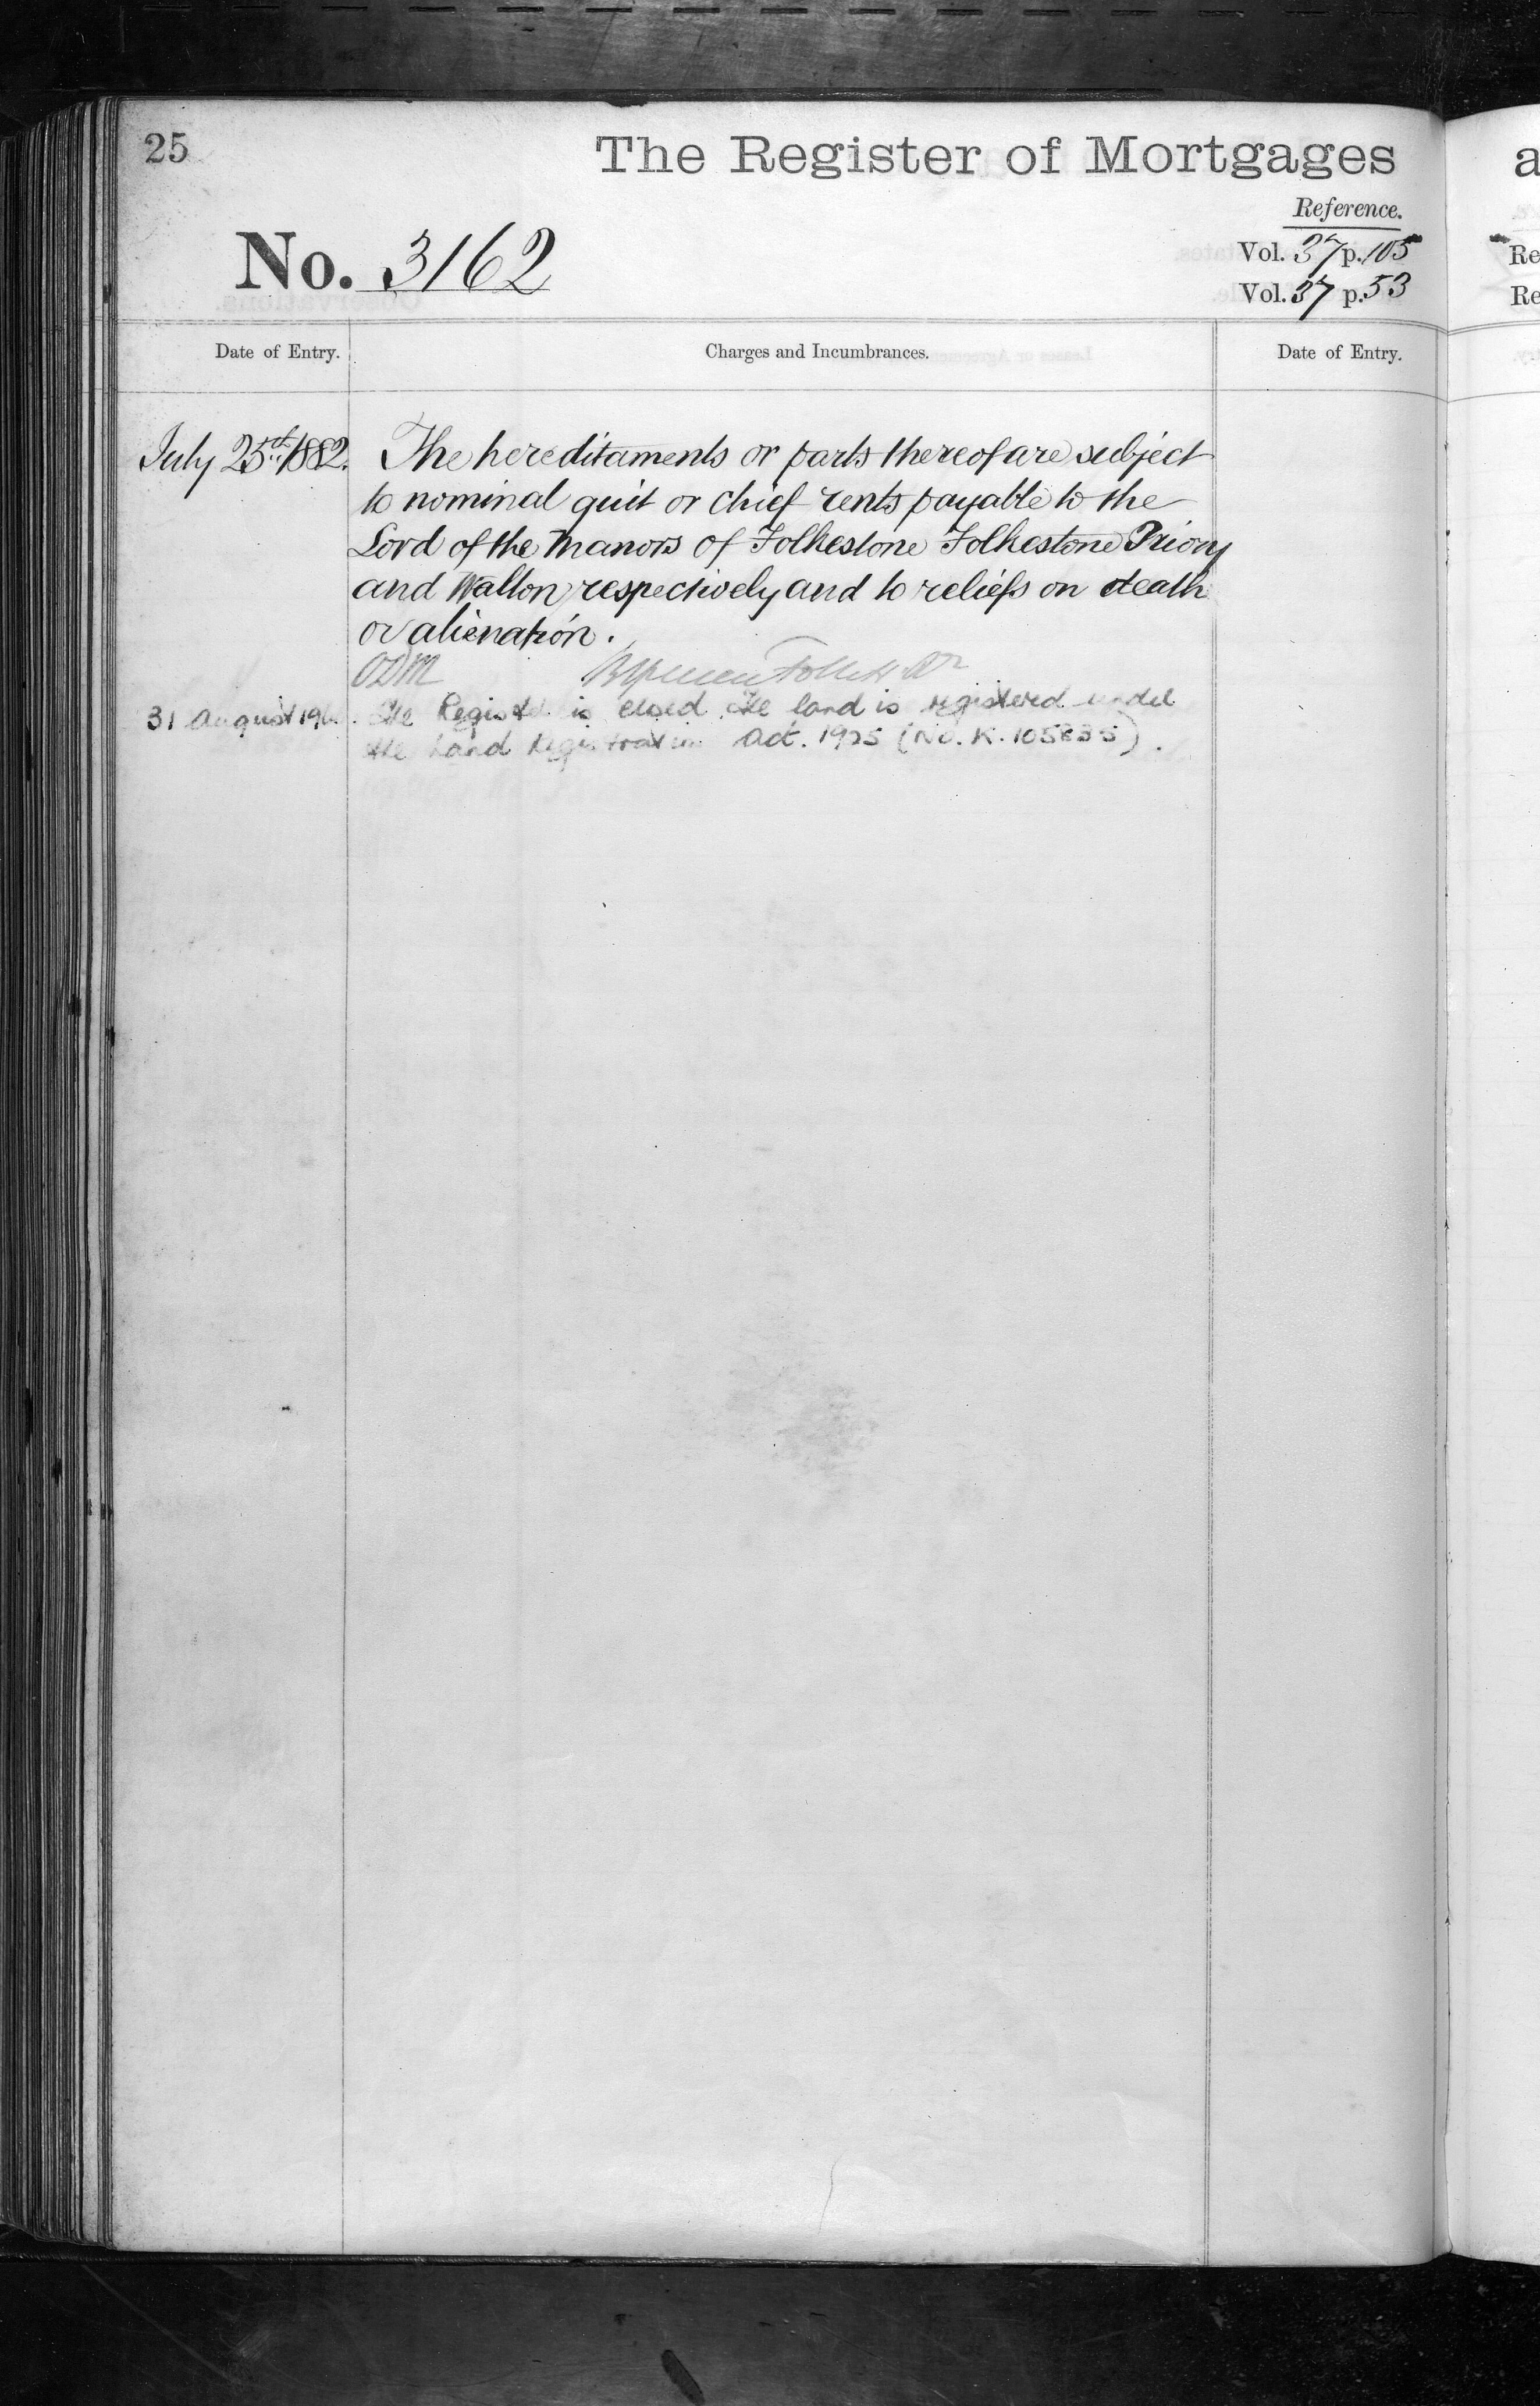 25
The Register of Mortgages
Reference.
No. 3162
Vol. 37 p. 105
Vol. 37 p. 53
Date of Entry.
Charges and Incumbrances.
Date of Entry.
July 25th 1882.
The hereditaments or parts thereof are subject
to nominal quit or chief rents payable to the
Lord of the Manors of Folkestone Folkestone Priory
and Walton respectively and to reliefs on death
or alienation.
ODM
31 August
The Register is closed. The land is registered under
the Land Registration Act. 1925 (No. K.
a
Re
Re